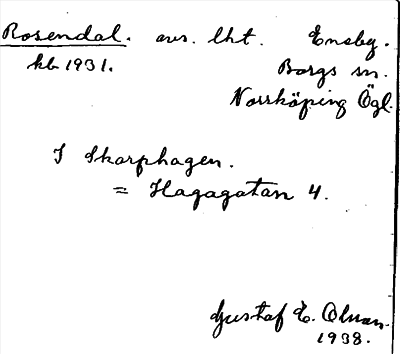 Rosendal. avs. lht. Eneby.
kb 1931. Borgs sn.
Norrköping Ögl.
I Skarphagen.
= Hagagatan 4.
Gustaf E. Olman.
1938.